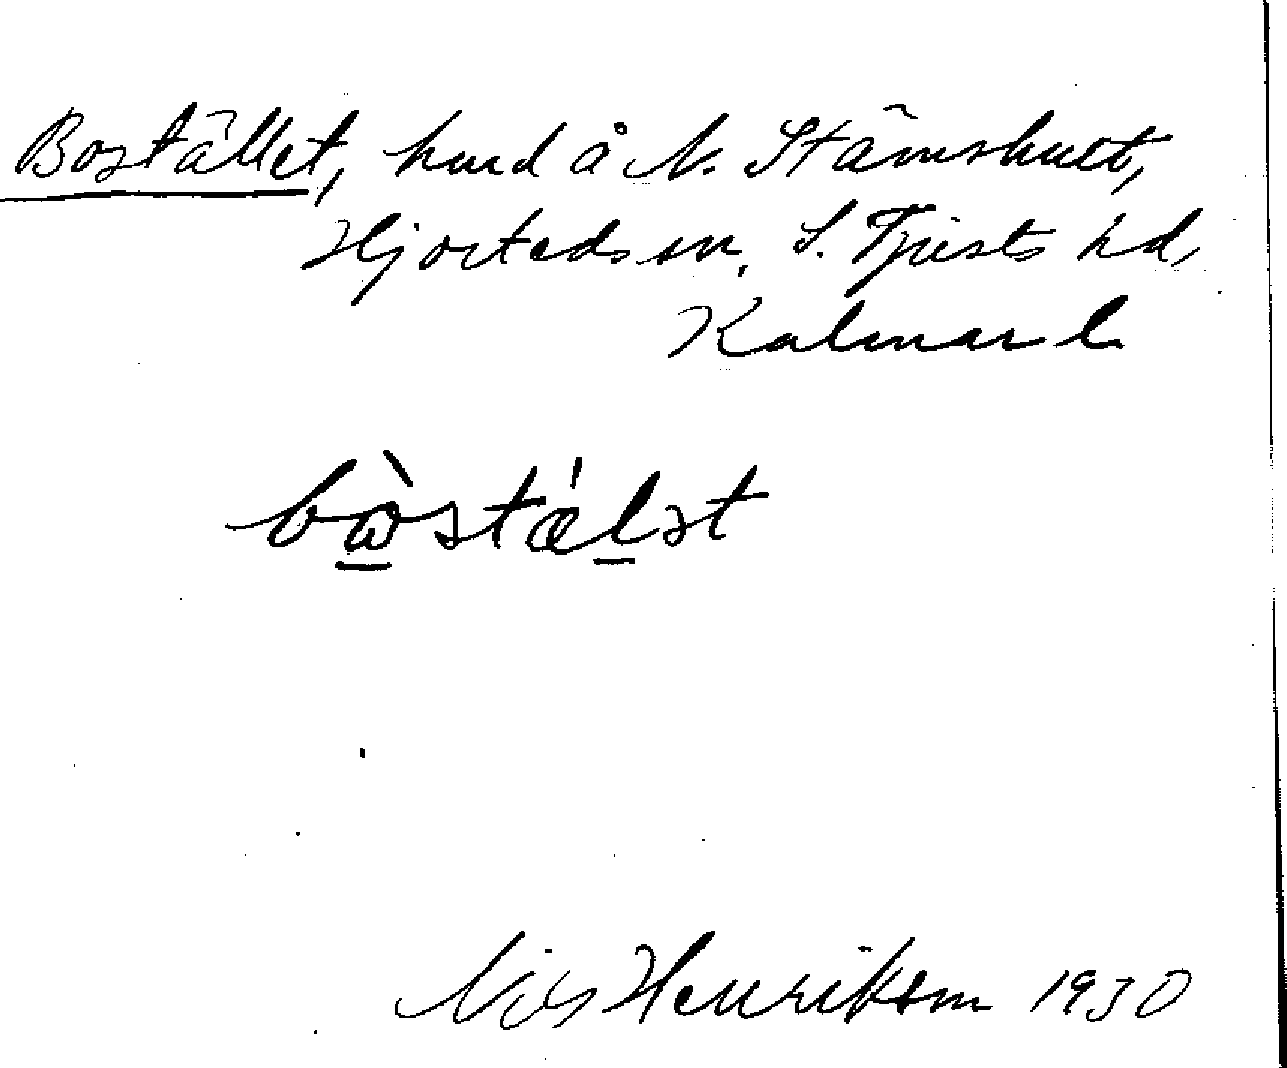 Bostället, hmd å N. Stämshult,
Hjorteds sn, S. Tjusts hd,
Kalmar l.
bὼstæ̍lət
Nils Henrikson 1930